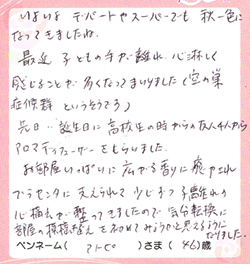 いよいよ デパートやスーパーでも 秋一色に
なってきましたね。
最近 子どもの手が離れ、心淋しく
感じることが多くなってまいりました(空の巣
症候群 というそうです)
先日、誕生日に高校生の時からの友人4人から
アロマディフューザーをもらいました。
お部屋いっぱいに 広がる香りに 癒やされ
プラセンタに支えられて 少しずつ子離れの
心構えが 整ってきましたので 気分転換に
部屋の模様替えを初めてみようかと思てるように
なりました。
ペンネーム( アトピ )さま (46)歳